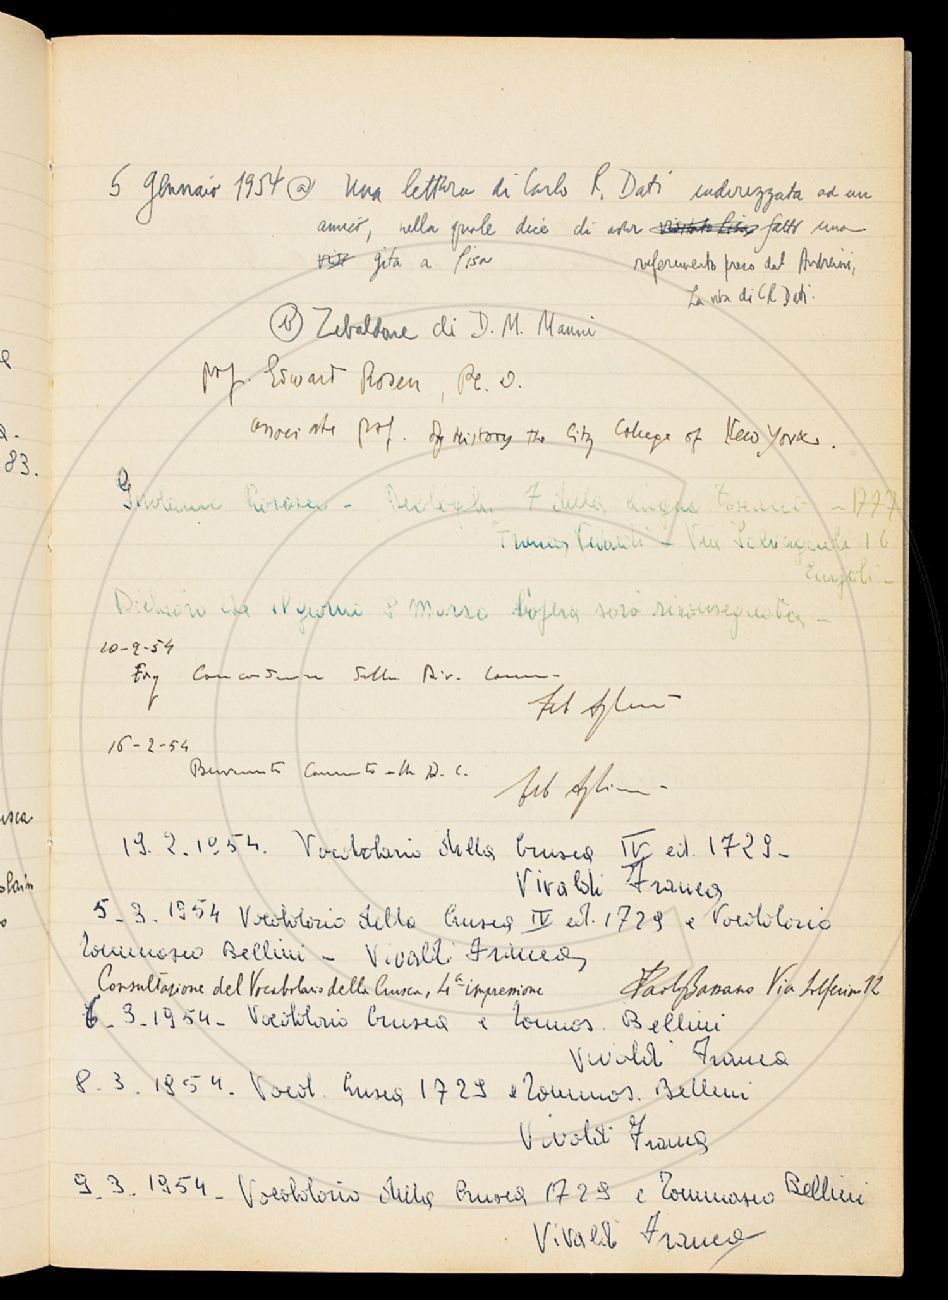 5 Gennaio 1954 (a) Una lettera di Carlo R. Dati indirizzata ad un
amico, nella quale dice di aver visitato Pisa fatto una
visi gita a Pisa riferimento preso dal Andreini,
La vita di C R Dati.
(b) Zibaldone di D. M. Manni
prof. Edward Rosen, Ph. D.
associate prof. of History the City College of New York.
Girolamo - Dialoghi 7 della lingua Toscana - 1777
Franca Vivaldi - Via 16
Empoli -
Dichiaro che il giorno 8 Marzo l'opera sarà riconsegnata -
10-2-54
sulla Div. Comm.
16-2-54
Benvenuto Commento alla D. C.
19. 2. 1954. Vocabolario della Crusca IV ed. 1729-
Vivaldi Franca
5-3-1954 Vocabolario della Crusca IV ed. 1729 e Vocabolario
Tommaseo Bellini - Vivaldi Franca
Consultazione del Vocabolario della Crusca, 4ª impressione Paolo Bassano Via Solferino 12
6-3-1954- Vocabolario Crusca e Tommas. Bellini
Vivaldi Franca
8. 3. 1954. Vocab. Crusca 1729 e Tommas. Bellini
Vivaldi Franca
9-3-1954- Vocabolario della Crusca 1729 e Tommaseo Bellini
Vivaldi Franca
83.